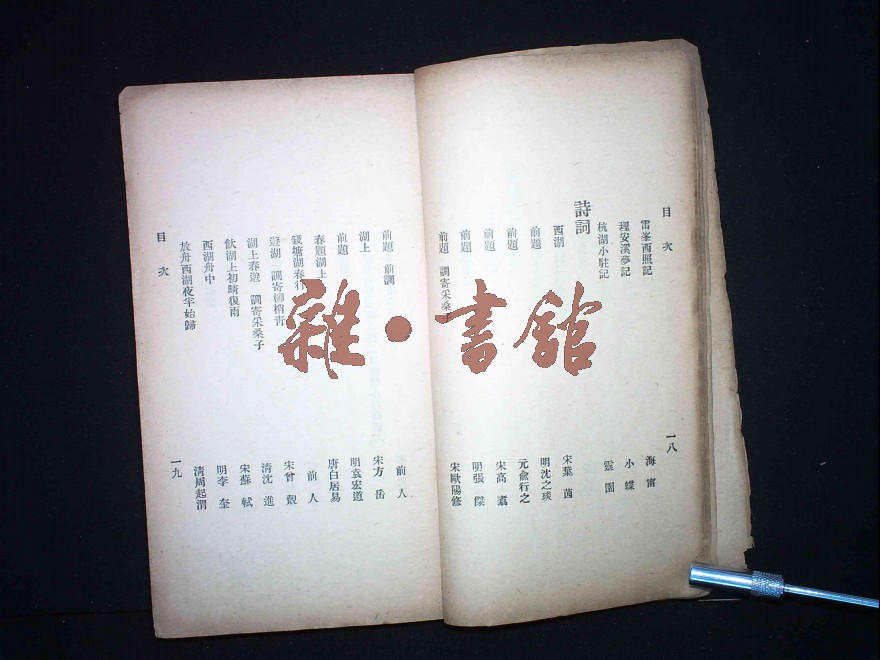 目次
雷峯西照記 海甯
理安溪夢記 小蝶
杭湖小駐記 靈園
詩詞
西湖 宋葉茵
前題 明沈之琰
前題 元俞行之
前題 宋高翥
前題 明張傑
前題 調寄采桑子 宋歐陽修
一八
前題 前調 前人
湖上 宋方岳
前題 明袁宏道
春題湖上 唐白居易
錢塘湖春行 前人
遊湖 調寄柳梢青 宋曾覿
湖上春遊 調寄采桑子 清沈進
飲湖上初晴復雨 宋蘇軾
西湖舟中 明李奎
放舟西湖夜半始歸 清周起渭
目次
一九
雜·書館